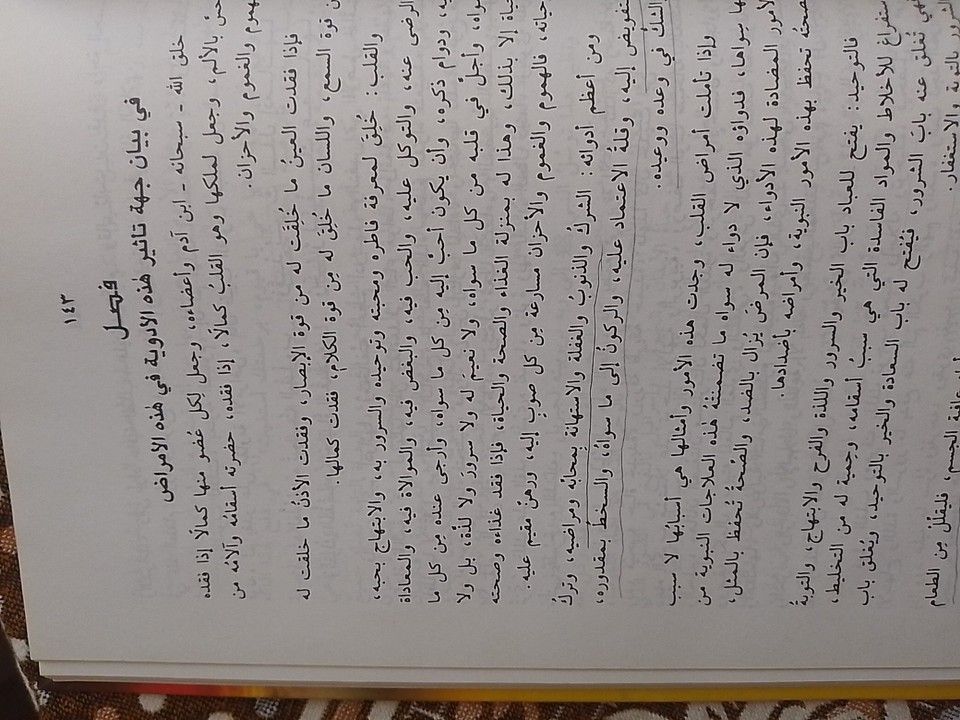 ١٤٣
فصل
في بيان جهة تأثير هذه الأدوية في هذه الأمراض
خلق الله - سبحانه - ابن آدم وأعضاءه، وجعل لكل عُضو منها كمالًا إذا فقده
بالألم، وجعل لملكها وهو القلبُ كمالًا، إذا فقده، حضرته أسقامُه وآلامُه من
والغموم والأحزان.
فإذا فقدت العينُ ما خُلِقت له من قوة الإبصار، وفقدت الأذنُ ما خلقت له
قوة السمع، واللسان ما خُلِقَ له مِن قوة الكلام، فقدت كمالها.
والقلب: خُلِقَ لمعرفة فاطره ومحبته وتوحيده والسرور به، والابتهاج بحبه،
الرضى عنه، والتوكل عليه، والحب فيه، والبغض فيه، والموالاة فيه، والمعاداة
ودوام ذكره، وأن يكون أحبَّ إليه مِن كل ما سواه، وأرجى عنده مِن كل ما
وأجلَّ في قلبه من كل ما سواه، ولا نعيمَ له ولا سرورَ ولا لذَّة، بل ولا
إلا بذلك، وهذا له بمنزلة الغذاء والصحة والحياة، فإذا فقد غذاءه وصحته
فالهموم والغموم والأحزان مسارعة مِن كل صوبٍ إليه، ورهنٌ مقيم عليه.
ومن أعظم أدوائه: الشركُ والذنوبُ والغفلة والاستهانة بمحابِّه ومراضيه، وتركُ
إليه، وقلةُ الاعتماد عليه، والركونُ إلى ما سواه، والسخطُ بمقدوره،
والشكُّ في وعده ووعيده.
وإذا تأملت أمراض القلب، وجدت هذه الأمور وأمثالها هي أسبابُها لا سبب
سِواها، فدواؤه الذي لا دواء له سواه ما تضمنتهُ هذه العلاجات النبوية من
المضادة لهذه الأدواء، فإن المرضَ يُزال بالضد، والصِّحةُ تُحفظ بالمثل،
تحفظ بهذه الأمور النبوية، وأمراضُه بأضدادها.
فالتوحيد: يفتح للعباد باب الخير والسرور واللذة والفرح والابتهاج، والتوبةُ
للأخلاط والمواد الفاسدة التي هي سببُ أسقامه، وحِمية له من التخليط،
تُغلق عنه بابَ الشرور، فيُفتح له باب السعادة والخير بالتوحيد، ويُغلق باب
بالتوبة والاستغفار.
عافية الجسم، فليقلِّل مِن الطعام